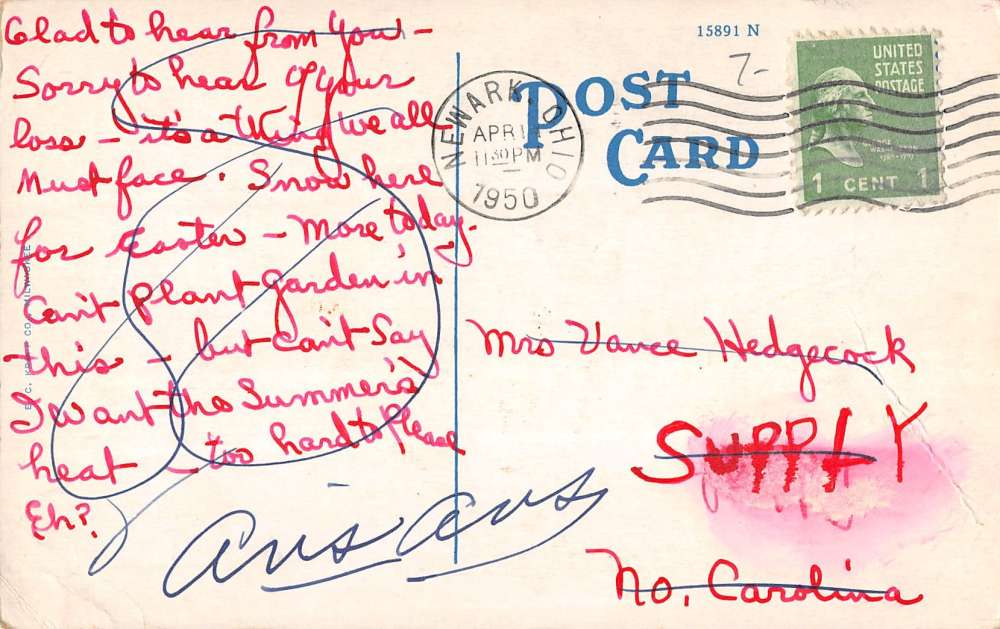 Glad to hear from you -
Sorry to hear of your
loss - it's a thing we all
Must face. Snow here
for Easter - More today.
Can't plant garden in
this - but can't Say
I want the Summer's
heat - too hard to Please
Eh?
15891 N
7-
POST
CARD
NEWARK, OHIO
APR
11 30 PM
1950
UNITED
STATES
POSTAGE
1 CENT 1
Mrs Vance Hedgecock
SUPPLY
No. Carolina